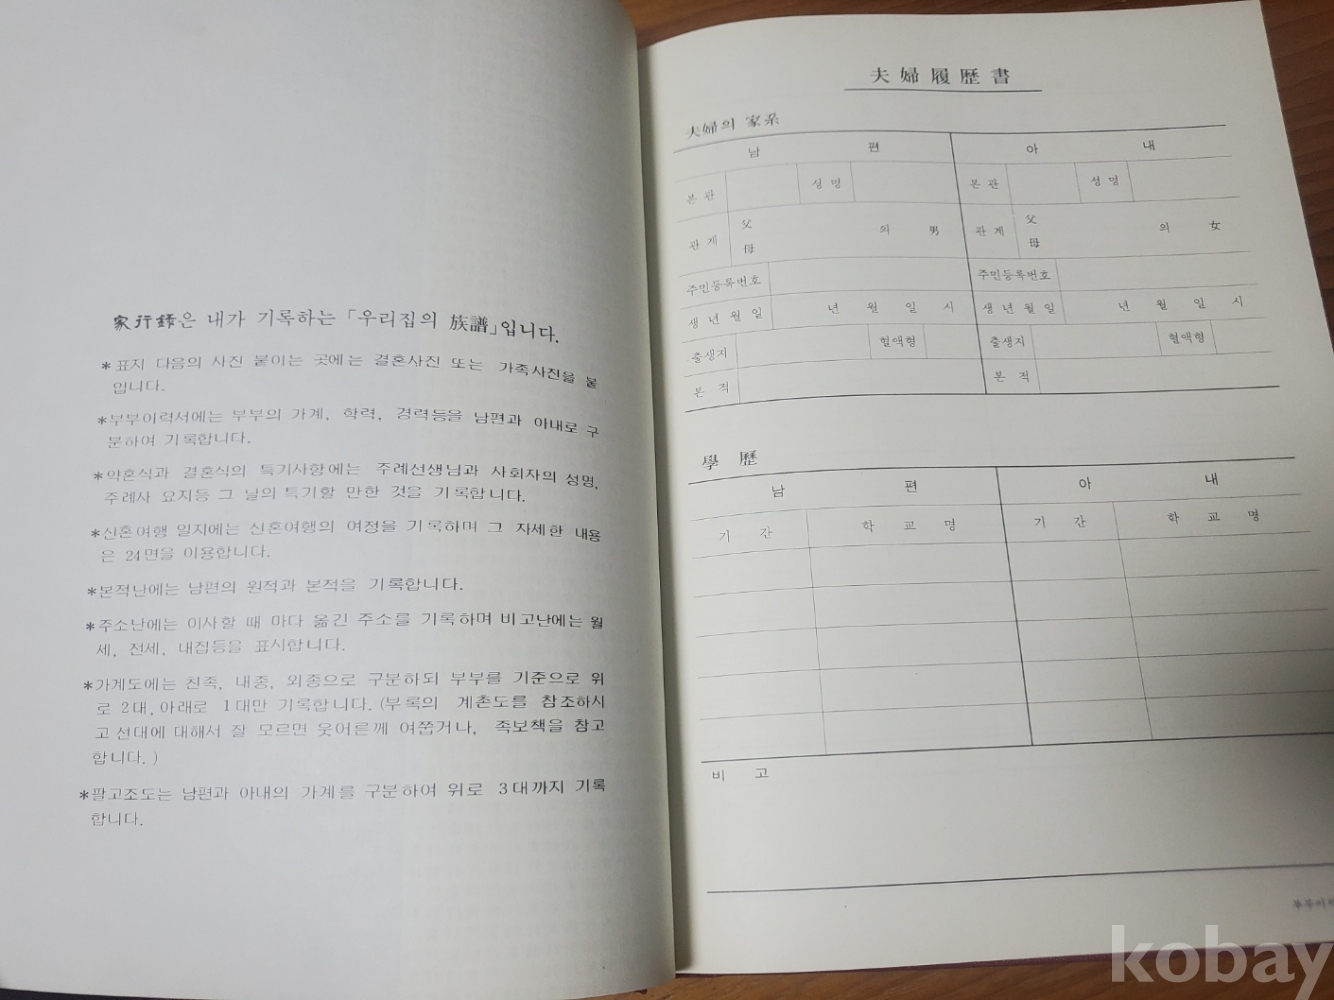 家行錄은 내가 기록하는 「우리집의 族譜」입니다.
*표지 다음의 사진 붙이는 곳에는 결혼사진 또는 가족사진을 붙
입니다.
*부부이력서에는 부부의 가계, 학력, 경력등을 남편과 아내로 구
분하여 기록합니다.
*약혼식과 결혼식의 특기사항에는 주례선생님과 사회자의 성명,
주례사 요지등 그 날의 특기할 만한 것을 기록합니다.
*신혼여행 일지에는 신혼여행의 여정을 기록하며 그 자세한 내용
은 24면을 이용합니다.
*본적난에는 남편의 원적과 본적을 기록합니다.
*주소난에는 이사할 때 마다 옮긴 주소를 기록하며 비고난에는 월
세, 전세, 내집등을 표시합니다.
*가계도에는 친족, 내종, 외종으로 구분하되 부부를 기준으로 위
로 2대, 아래로 1대만 기록합니다. (부록의 계촌도를 참조하시
고 선대에 대해서 잘 모르면 웃어른께 여쭙거나, 족보책을 참고
합니다.)
*팔고조도는 남편과 아내의 가계를 구분하여 위로 3대까지 기록
합니다.
夫婦履歷書
夫婦의 家系
남 편 아 내
본 관 성 명 본 관 성 명
관 계 父 母 의 男 관 계 父 母 의 女
주민등록번호 주민등록번호
생 년 월 일 년 월 일 시 생 년 월 일 년 월 일 시
출생지 혈액형 출생지 혈액형
본 적 본 적
學 歷
남 편 아 내
기 간 학 교 명 기 간 학 교 명
비 고
kobay